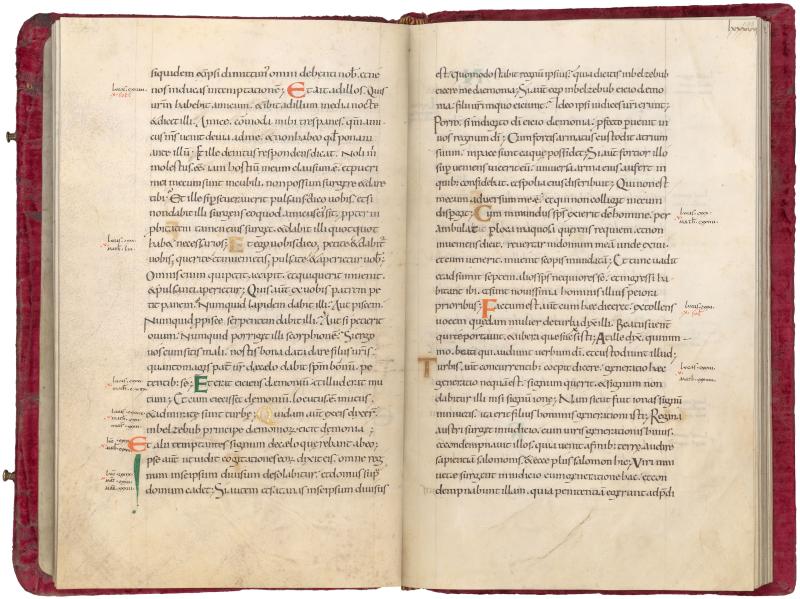 siquidem & ipsi dimittim' omni debenti nob. & ne
nos inducas in temptatione; Et ait ad illos; Quis
urm habebit amicum. & ibit ad illum media nocte
& dicet illi; Amice. comoda mihi tres panes. qm ami
cus ms uenit de uia ad me. & non habeo qd ponam
ante illu; Et ille deintus respondens dicat. Noli m
molestus. ee. iam hostiu meum clausum e. & pueri
mei mecum sint incubili. non possum surgere & dare
tibi; Et ille si perseuerauerit pulsans dico uobis. & si
non dabit illi surgens eo quod amicus ei' sit; ppter in
pbitatem tam ei' surget. & dabit illi quotquot
habe& necessarios; Et ego uobis dico. petite & dabit
uobis, querite & inuenietis, pulsate & aperietur uob;
Omnis enim qui petit. accipit. & qui querit inuenit.
& pulsanti aperietur; Quis aut ex uobis patrem pe
tit panem. Numquid lapidem dabit illi; Aut piscem.
Numquid p pisce serpentem dabit illi; Aut si petierit
ouum. Numquid porriget illi scorpione; Si ergo
uos cum sitis mali. nostis bona data dare filiis uris.
quanto magis pat' ur de celo dabit spm bonu. pe
tentib; se; Et erat eiciens demoniu. & illud erat mu
tum; Et cum eiecisset demoniu. locutus e mutus.
& admirate sunt turbe; Quidam aut ex eis dixer.
in belzebub principe demoniorum eicit demonia;
Et alii temptantes signum de celo querebant ab eo;
Ipse aut ut uidit cogitationes eoru. dixit eis. omne reg
num in seipsum diuisum desolabitur. & domus sup
domum cadet; Si autem & satanas in seipsum diuisus
est. quomodo stabit regnu ipsius. quia dicitis in belzebub
eicere me daemonia; Si aut ego in belzebub eicio demo
nia. filii uri in quo eiciunt; Ideo ipsi iudices uri erunt;
Porro si in digito di eicio daemonia. pfecto puenit in
uos regnum di; Cum fortis armatus custodit atrium
suum. in pace sunt ea que possidet; Si aut fortior illo
superueniens uicerit eu. uniuersa arma ei' aufert in
quib; confidebat. & spolia ei' distribu&; Qui non est
mecum. aduersum me e. & qui non colligit mecum
dispergit; Cum inmundus sps exierit de homine. per
ambulat p loca inaquosa querens requiem. & non
inueniens dicit. reuertar in domum mea unde exiui.
& cum uenerit. inuenit scopis mundata; Et tunc uadit
& adsumit septem alios sps nequiores se. & ingressi ha
bitant ibi. & sunt nouissima hominis illius peiora
prioribus; Factum est aut cum haec diceret. extollens
uocem quedam mulier de turba dix illi. Beatus uent'
qui te portauit. & ubera que suxisti; At ille dix. quinim
mo. beati qui audiunt uerbum di. & custodiunt illud;
Turbis. aut concurrentib; coepit dicere. generatio haec
generatio nequa est. signum querit. & signum non
dabitur illi nisi signu ione; Nam sicut fuit ionas signu
niniuitis. ita erit filius hominis generationi isti; Regina
austri surget in iudicio. cum uiris generationis huius.
& condempnabit illos. quia uenit a finib; terre. audire
sapientia salomonis. & ecce plus salomon hic; Viri nini
uitae surgent in iudicio cum generatione hac. & con
dempnabunt illam. quia penitentia egerunt ad pdi